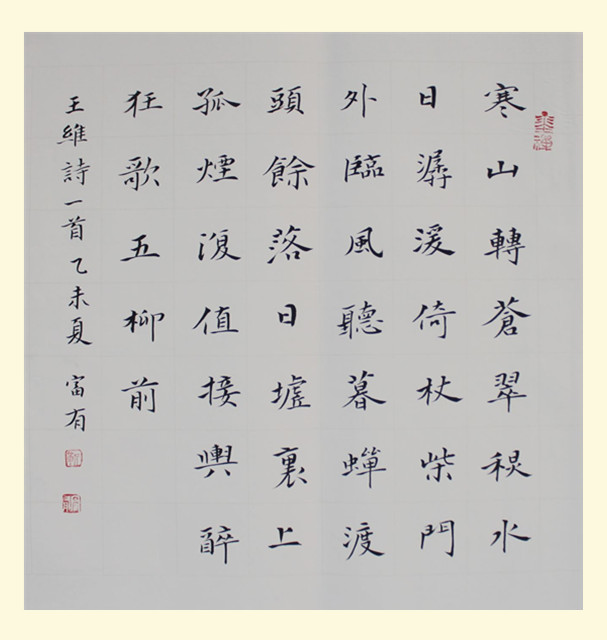 寒山轉蒼翠秋水
日潺湲倚杖柴門
外臨風聽暮蟬渡
頭餘落日墟裏上
孤煙復值接輿醉
狂歌五柳前
王維詩一首 乙未夏 富有